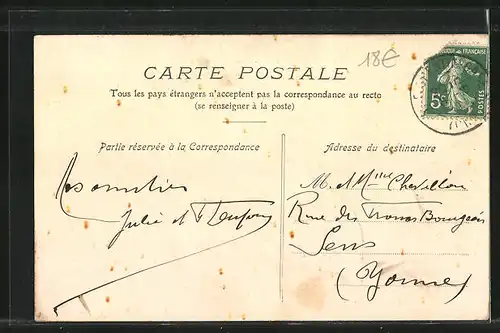 18€
CARTE POSTALE
Tous les pays étrangers n'acceptent pas la correspondance au recto
(se renseigner à la poste)
FRANÇAISE
5c
POSTES
Partie réservée à la Correspondance
Adresse du destinataire
Julie et
M. et Mme Chevillon
Rue des Francs Bourgeois
Sens
(Yonne)